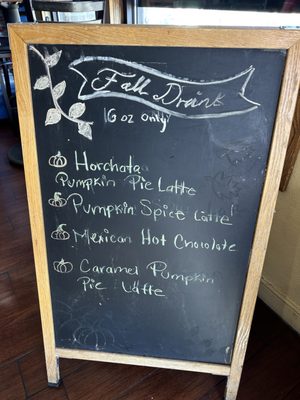 Fall Drink
16 oz only
Horchata
Pumpkin Pie Latte
Pumpkin Spice Latte
Mexican Hot Chocolate
Caramel Pumpkin
Pie Latte